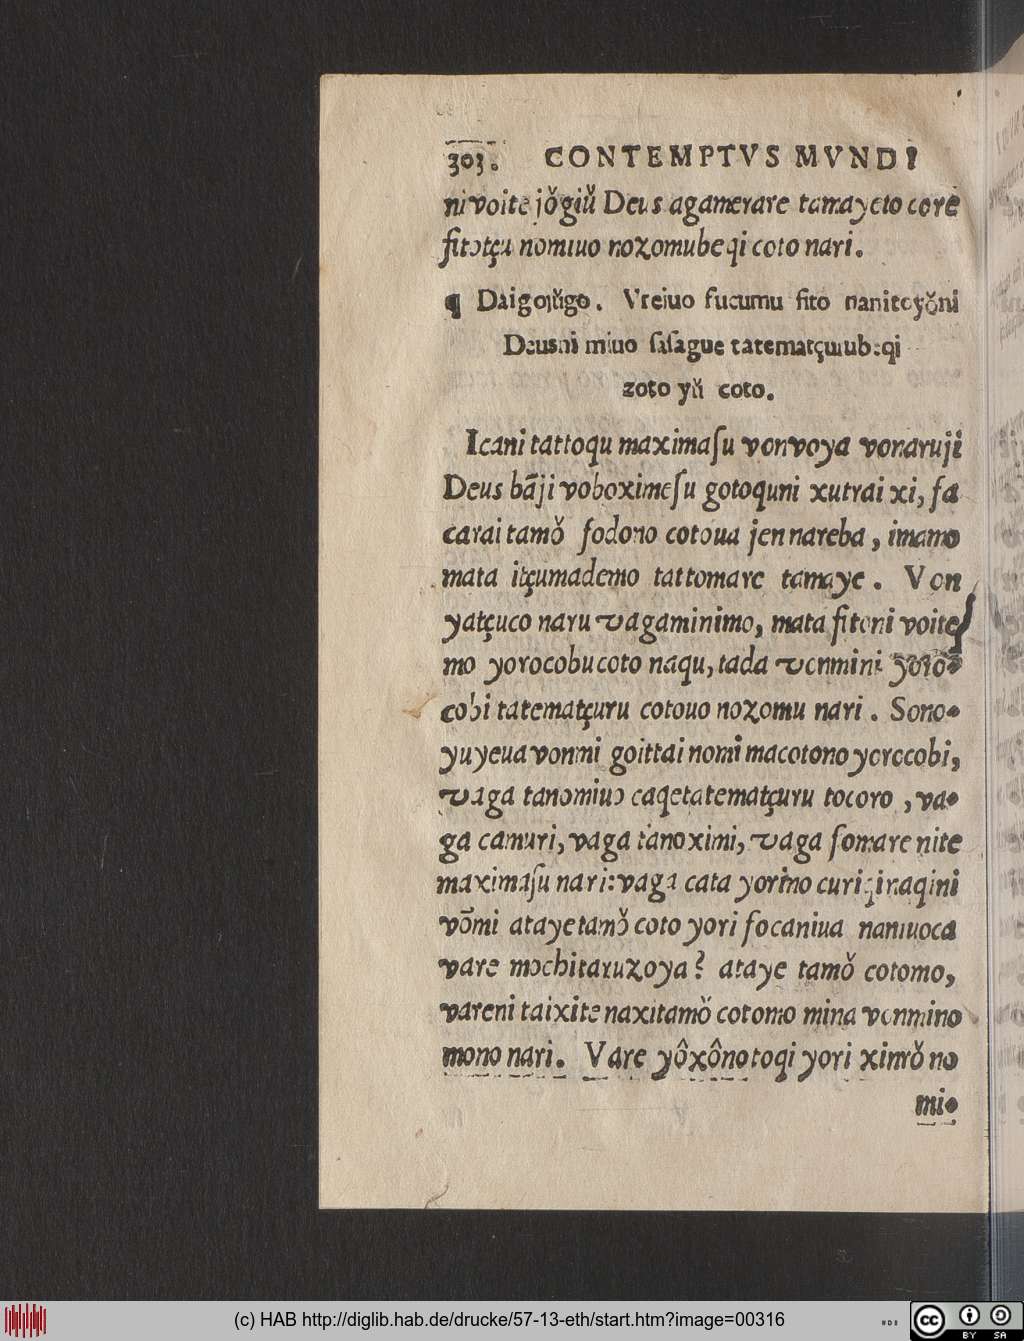 303. CONTEMPTVS MVNDI
ni voite jǒgiǔ Deus agamerare tamayeto core
fitotçu nomiuo nozomubeqi coto nari.
¶ Daigojŭgo. Vreiuo fucumu fito nanitoyǒni
Deusni miuo ſaſague tatematçuubeqi
zoto yŭ coto.
Icani tattoqu maximaſu vonvoya vonaruji
Deus bãji voboximeſu gotoquni xutrai xi, fa
carai tamǒ fodono cotoua jen nareba, imamo
mata itçumademo tattomare tamaye. Von
yatçuco naru vagaminimo, mata fitoni voite
mo yorocobu coto naqu, tada vonmini yoro-
cobi tatematçuru cotouo nozomu nari. Sono-
yuyeua vonmi goittai nomi macotono yorocobi,
vaga tanomiuo caqetatematçuru tocoro, va-
ga camuri, vaga tanoximi, vaga fomare nite
maximaſu nari: vaga cata yorino curiqi naqini
võmi atayetamǒ coto yori focaniua naniuoca
vare mochitaruzoya? ataye tamǒ cotomo,
vareni taixite naxitamǒ cotomo mina vonmino
mono nari. Vare yôxôno toqi yori xinrǒ no
mi-
(c) HAB http://diglib.hab.de/drucke/57-13-eth/start.htm?image=00316
cc BY SA